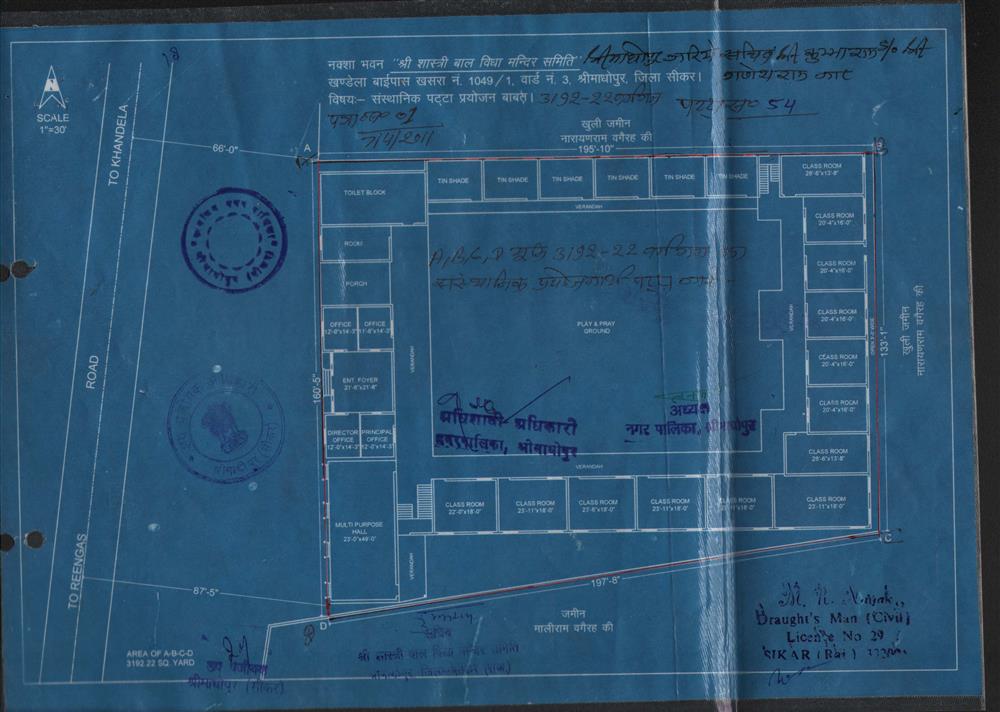 नक्शा भवन "श्री शास्त्री बाल विद्या मन्दिर समिति"
खण्डेला बाईपास खसरा नं. 1049/1, वार्ड नं. 3, श्रीमाधोपुर, जिला सीकर।
विषय:– संस्थानिक पट्टा प्रयोजन बाबत्। 3192-22
54
01
7/4/2011
SCALE
1"=30'
TO KHANDELA
ROAD
TO REENGAS
66'-0"
A
खुली जमीन
नारायणराम वगैरह की
195'-10"
B
TOILET BLOCK
TIN SHADE
TIN SHADE
TIN SHADE
TIN SHADE
TIN SHADE
TIN SHADE
CLASS ROOM
26'-6"x13'-8"
VERANDAH
CLASS ROOM
20'-4"x16'-0"
ROOM
A,B,C,D 3192-22
CLASS ROOM
20'-4"x16'-0"
PORCH
खुली जमीन
नारायणराम वगैरह की
133'-1"
OFFICE
12'-0"x14'-3"
OFFICE
11'-6"x14'-3"
PLAY & PRAY
GROUND
VERANDAH
CLASS ROOM
20'-4"x16'-0"
VERANDAH
160'-5"
ENT. FOYER
21'-6"x21'-8"
CLASS ROOM
20'-4"x16'-0"
CLASS ROOM
20'-4"x16'-0"
अधिशाषी अधिकारी
नगरपालिका, श्रीमाधोपुर
अध्यक्ष
नगर पालिका, श्रीमाधोपुर
DIRECTOR
OFFICE
12'-0"x14'-3"
PRINCIPAL
OFFICE
12'-0"x14'-3"
CLASS ROOM
26'-6"x13'-8"
VERANDAH
MULTI PURPOSE
HALL
23'-0"x49'-0"
CLASS ROOM
22'-0"x18'-0"
CLASS ROOM
23'-11"x18'-0"
CLASS ROOM
23'-6"x18'-0"
CLASS ROOM
23'-11"x18'-0"
CLASS ROOM
CLASS ROOM
23'-11"x18'-0"
C
VERANDAH
87'-5"
197'-8"
D
जमीन
मालीराम वगैरह की
AREA OF A-B-C-D
3192.22 SQ. YARD
उप पंजीयक
श्रीमाधोपुर (सीकर)
सचिव
श्री शास्त्री बाल विद्या मन्दिर समिति
Draught's Man (Civil)
License No 29
SIKAR (Raj.)